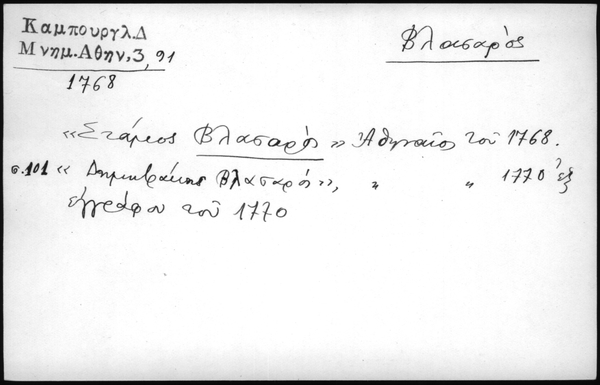 Καμπουργλ.Δ
Μνημ.Αθην,3, 91
1768
Βλασαρός
«Στάμος Βλασαρός» Ἀθηναῖος τοῦ 1768.
σ.101 « Δημητράκης Βλασαρός», " " 1770 ἐξ
ἐγγράφου τοῦ 1770